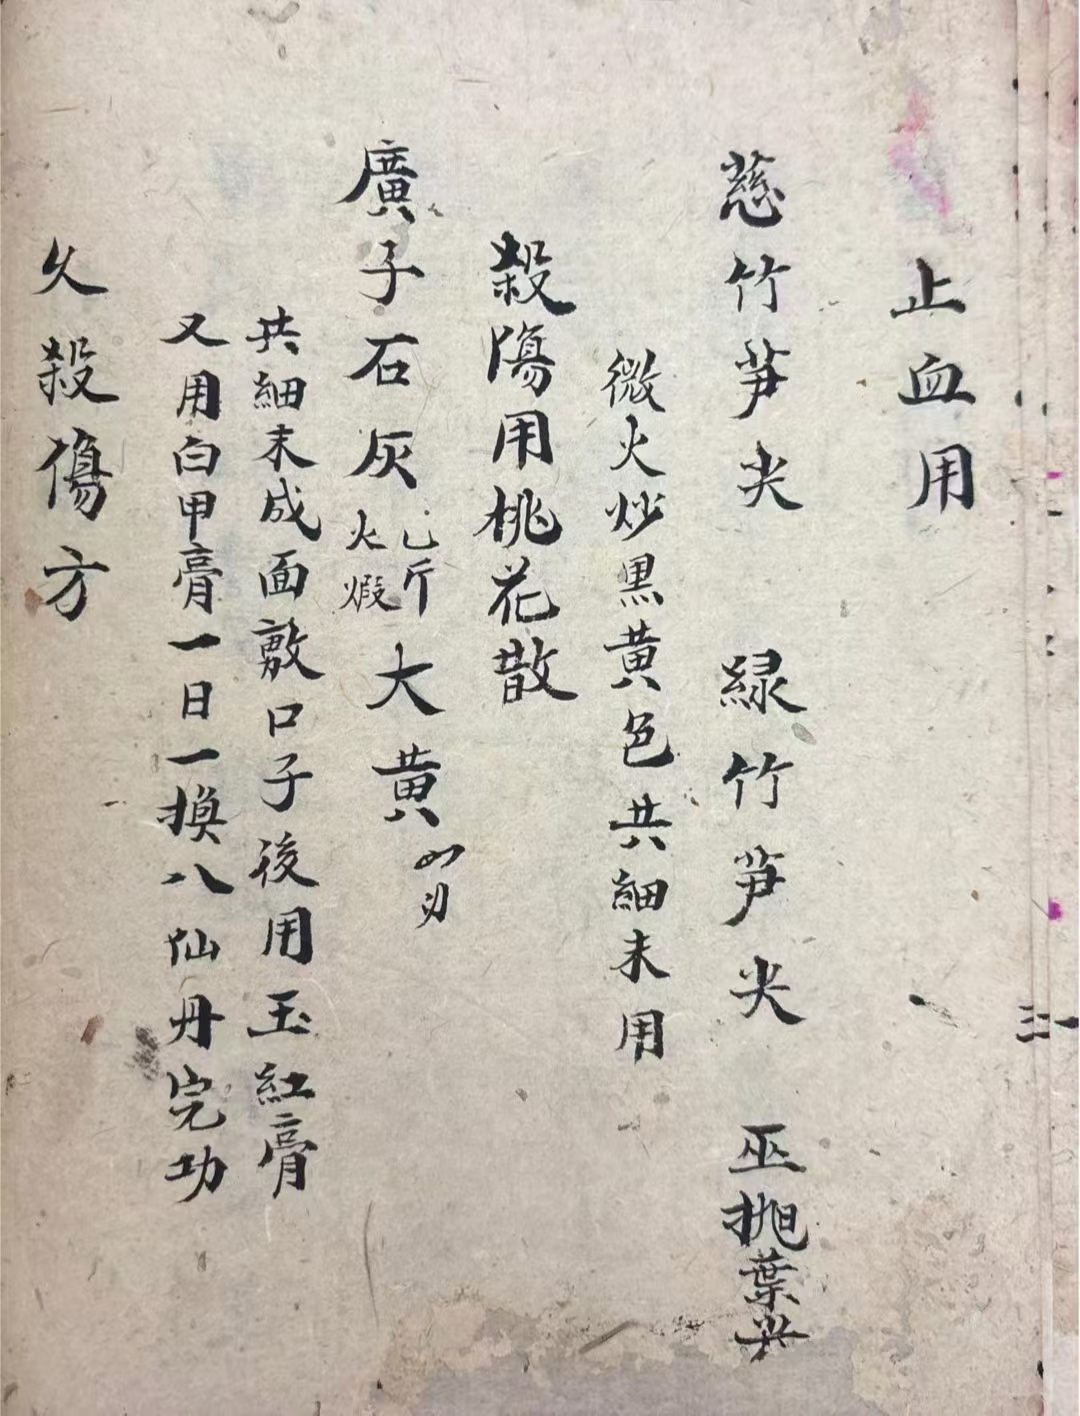 止血用
慈竹笋尖 緑竹笋尖 巫抛葉尖
微火炒黒黄色共細末用
殺傷用桃花散
廣子石灰乙斤火煆大黄
共細末成面敷口子後用玉紅膏
又用白甲膏一日一换八仙丹完功
久殺傷方